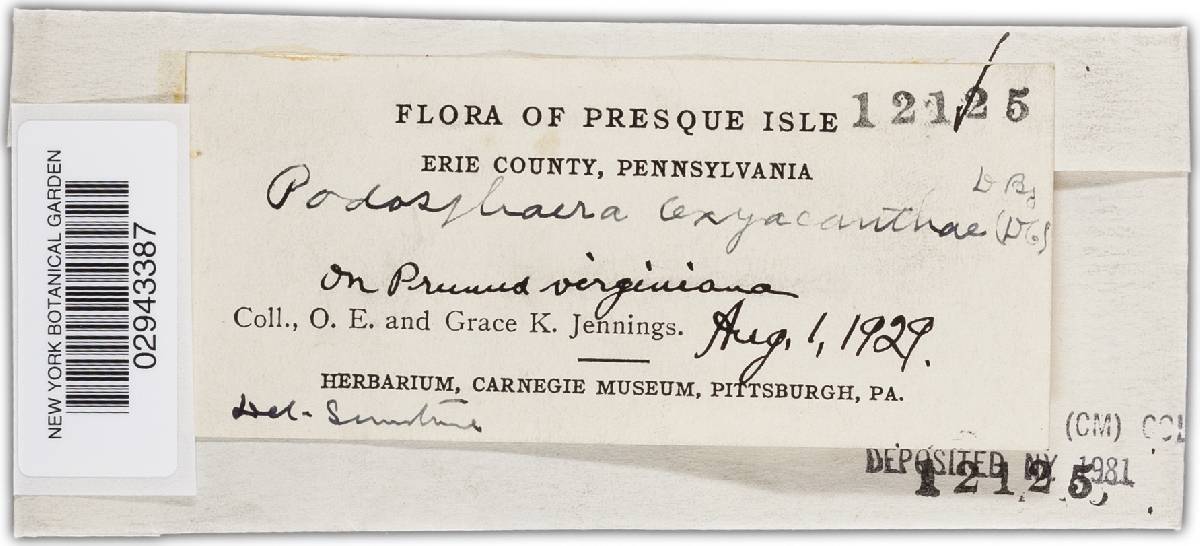 NEW YORK BOTANICAL GARDEN
02943387
FLORA OF PRESQUE ISLE 12125
ERIE COUNTY, PENNSYLVANIA
D By
Podosphaera Oxyacanthae (DC)
On Prunus virginiana
Coll., O. E. and Grace K. Jennings. Aug. 1, 1929.
HERBARIUM, CARNEGIE MUSEUM, PITTSBURGH, PA.
Det. Sumstine
(CM) COL
DEPOSITED NY 1981
12125